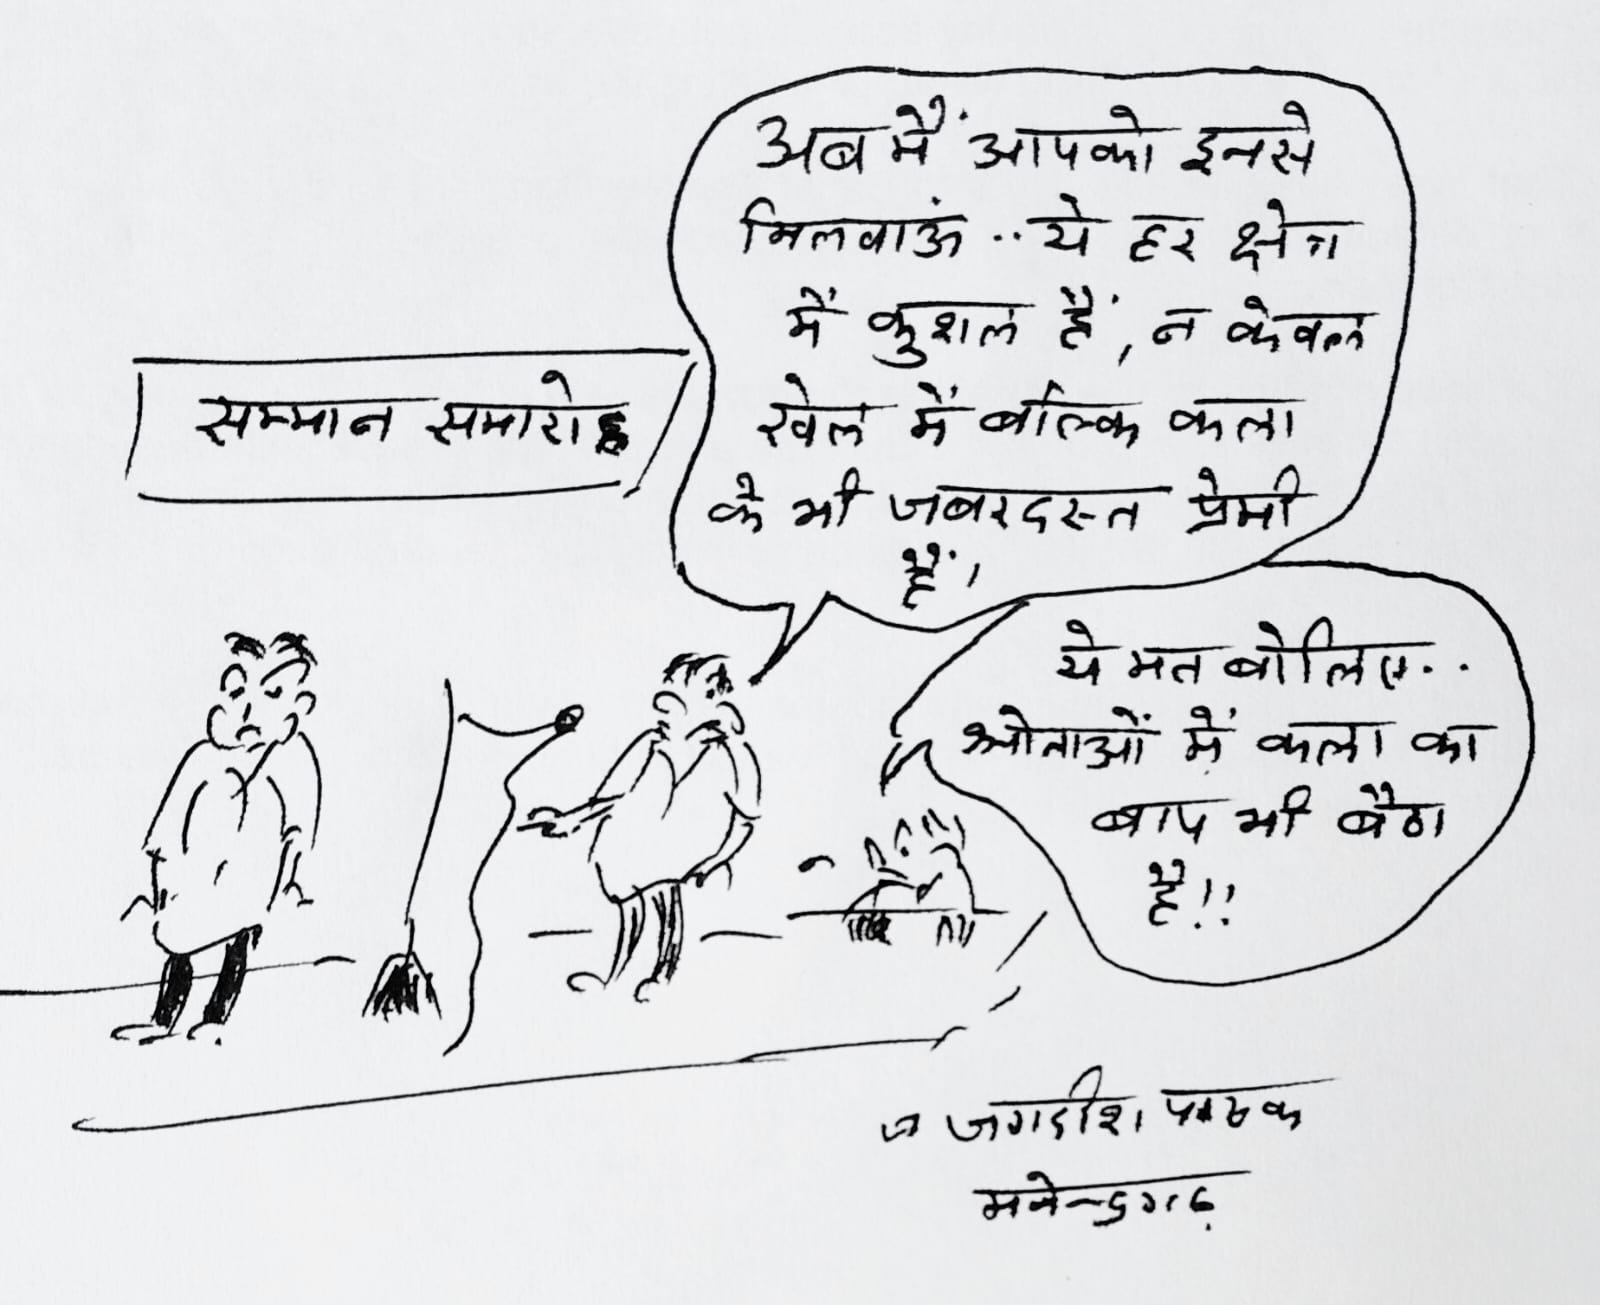 अब मैं आपको इनसे
मिलवाऊं..ये हर क्षेत्र
में कुशल हैं, न केवल
खेल में बल्कि कला
के भी जबरदस्त प्रेमी
हैं।
सम्मान समारोह
ये मत बोलिए..
श्रोताओं में कला का
बाप भी बैठा
है!!
जगदीश पाठक
मनेन्द्रगढ़